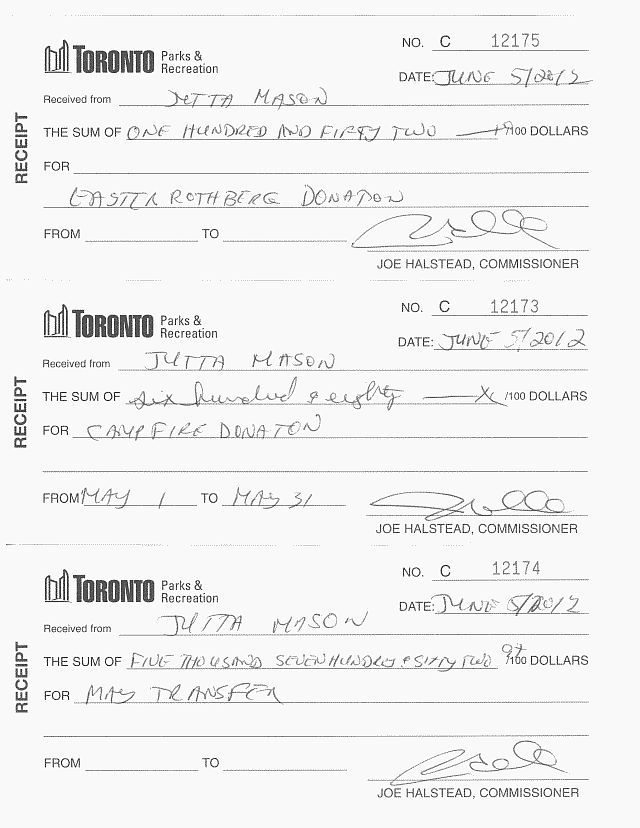 NO. C 12175
TORONTO Parks & Recreation
DATE: JUNE 5/2012
Received from JUTTA MASON
RECEIPT
THE SUM OF ONE HUNDRED AND FIFTY TWO /100 DOLLARS
FOR
EASTER ROTHBERG DONATION
FROM TO
JOE HALSTEAD, COMMISSIONER
NO. C 12173
TORONTO Parks & Recreation
DATE: JUNE 5/2012
Received from JUTTA MASON
RECEIPT
THE SUM OF six hundred & eighty x /100 DOLLARS
FOR CAMPFIRE DONATON
FROM MAY 1 TO MAY 31
JOE HALSTEAD, COMMISSIONER
NO. C 12174
TORONTO Parks & Recreation
DATE: JUNE 5/2012
Received from JUTTA MASON
RECEIPT
THE SUM OF FIVE THOUSAND SEVEN HUNDRED & SIXTY TWO /100 DOLLARS
FOR MAY TRANSFER
FROM TO
JOE HALSTEAD, COMMISSIONER